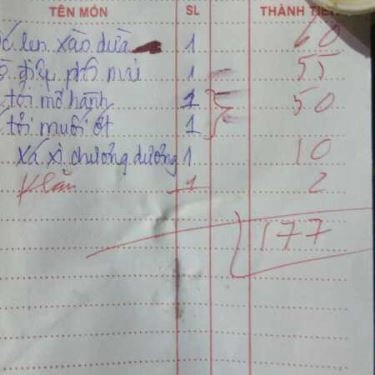 TÊN MÓN SL THÀNH TIỀN
ốc len xào dừa 1 60
phô mai 1 55
tỏi mỡ hành 1 50
tỏi muối ớt 1
Xá xị chương dương 1 10
Khăn 1 2
177